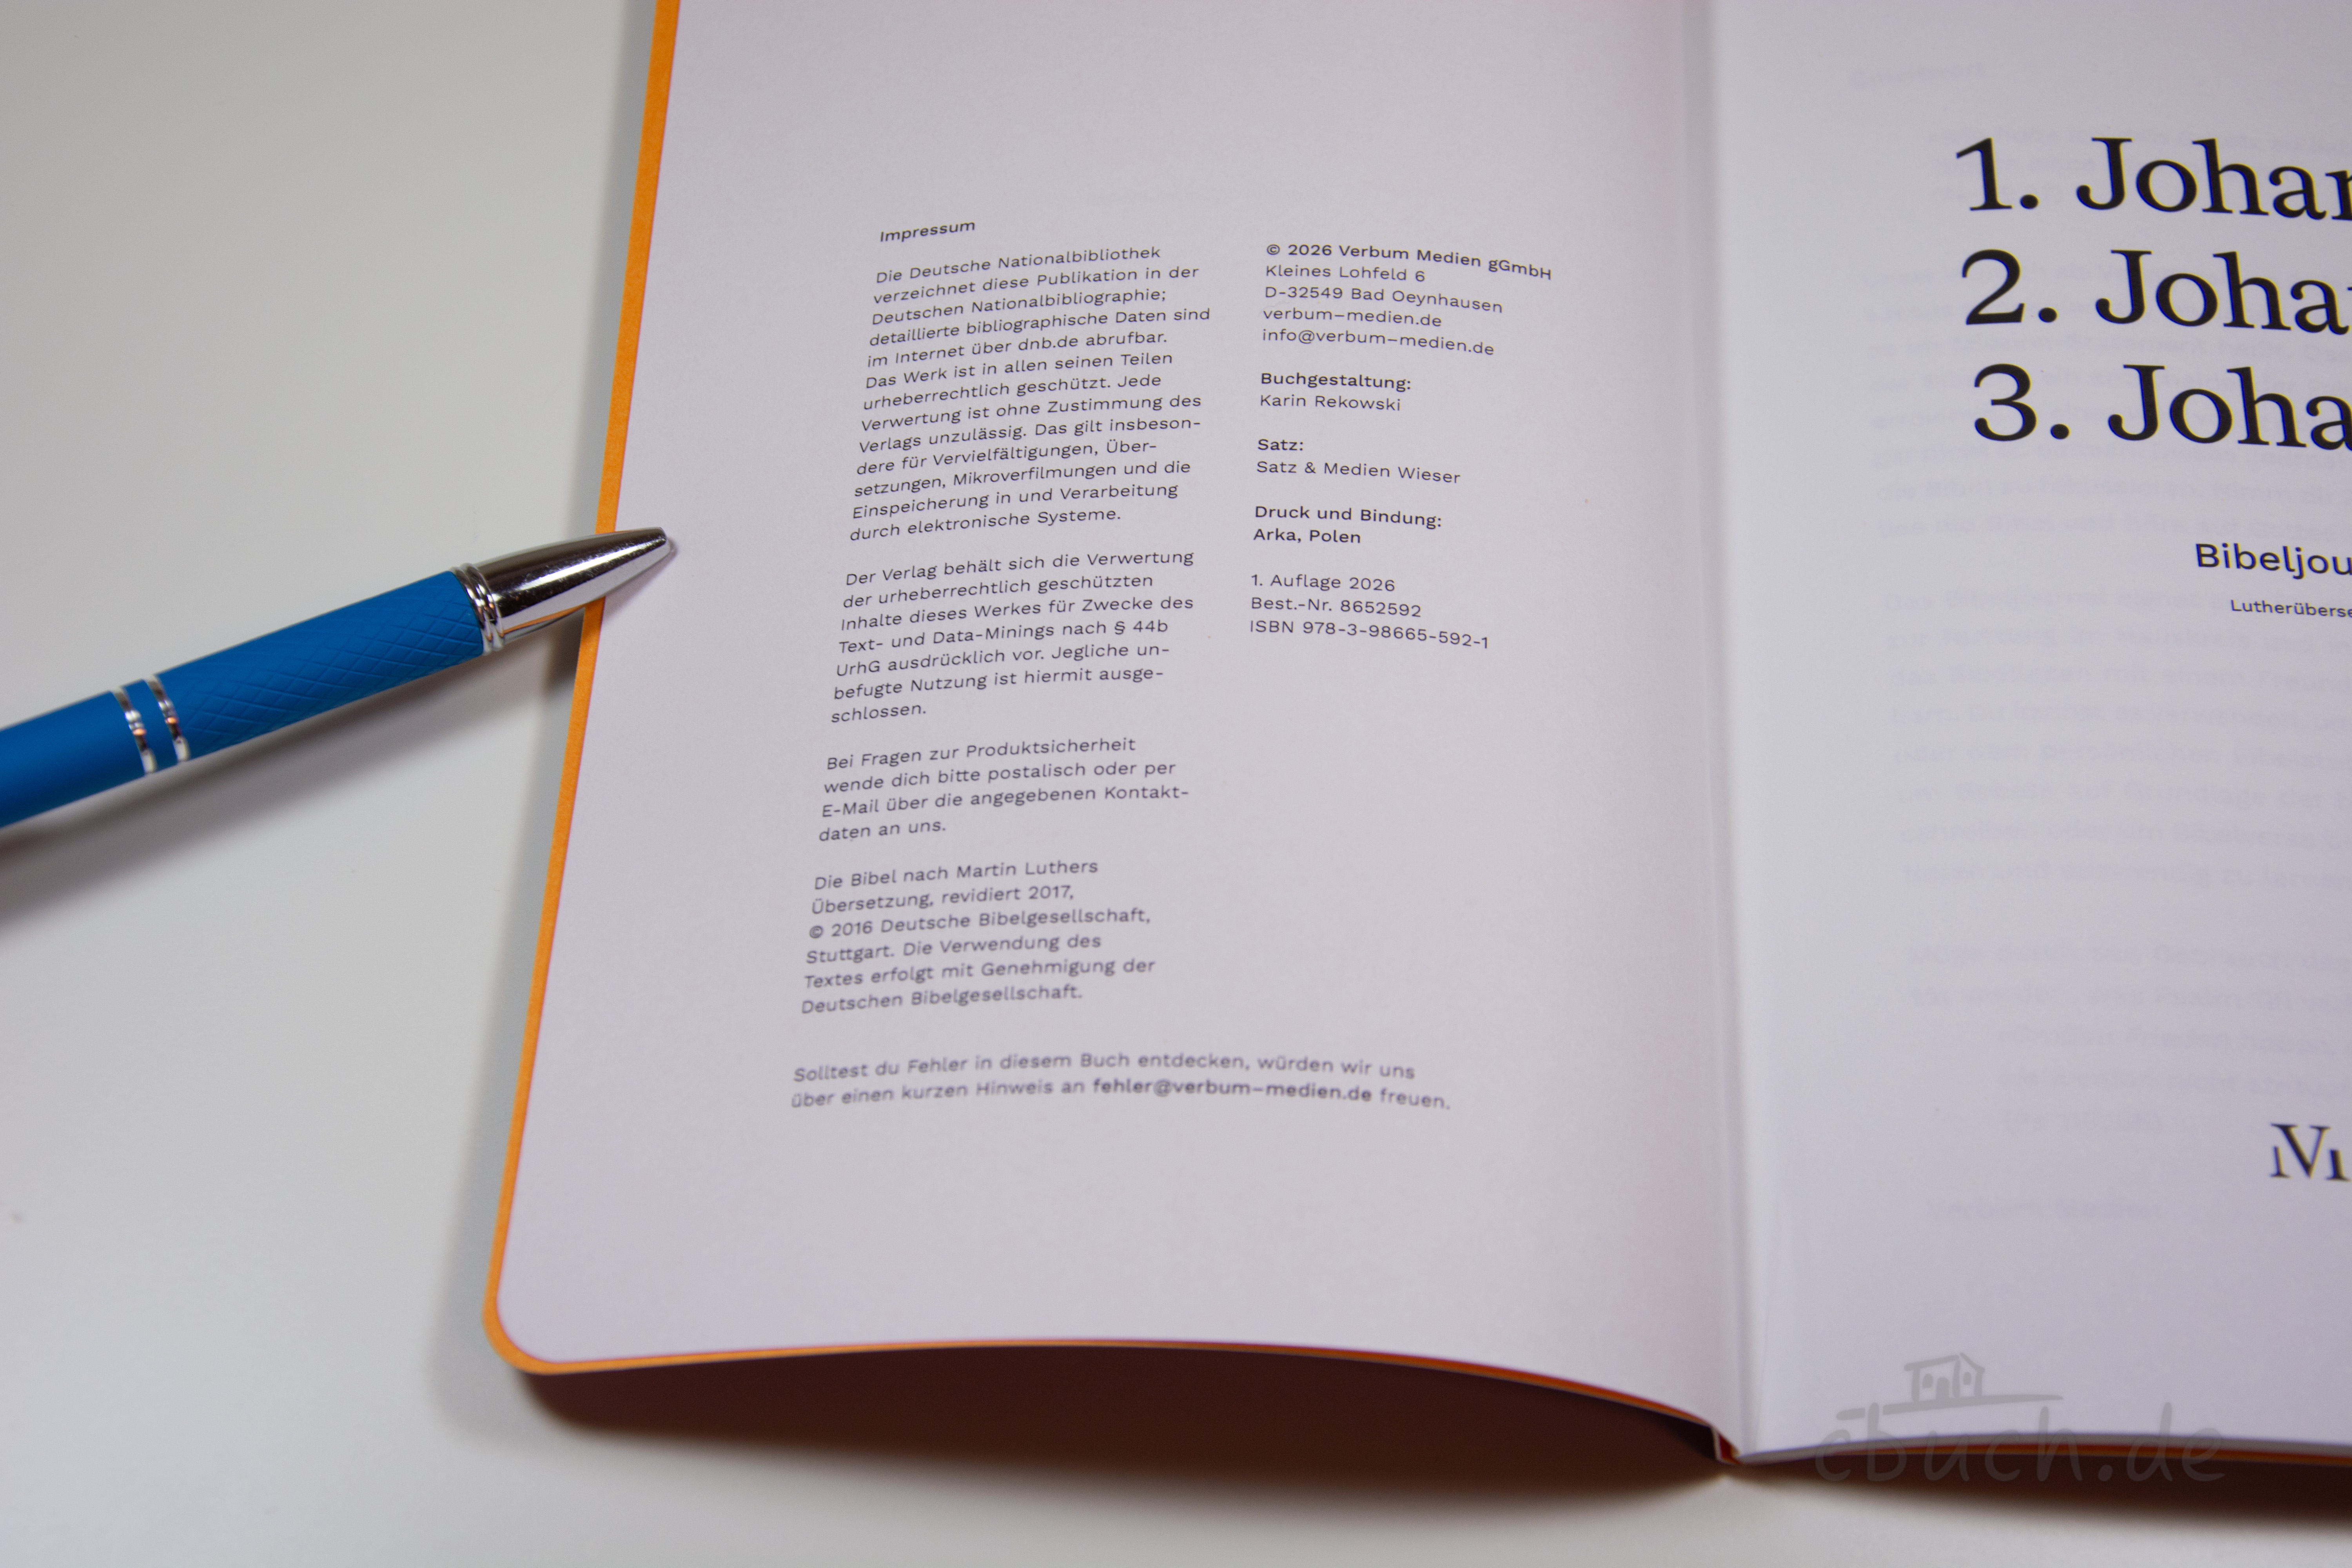 Impressum
Die Deutsche Nationalbibliothek
verzeichnet diese Publikation in der
Deutschen Nationalbibliographie;
detaillierte bibliographische Daten sind
im Internet über dnb.de abrufbar.
Das Werk ist in allen seinen Teilen
urheberrechtlich geschützt. Jede
Verwertung ist ohne Zustimmung des
Verlags unzulässig. Das gilt insbeson-
dere für Vervielfältigungen, Über-
setzungen, Mikroverfilmungen und die
Einspeicherung in und Verarbeitung
durch elektronische Systeme.
Der Verlag behält sich die Verwertung
der urheberrechtlich geschützten
Inhalte dieses Werkes für Zwecke des
Text- und Data-Minings nach § 44b
UrhG ausdrücklich vor. Jegliche un-
befugte Nutzung ist hiermit ausge-
schlossen.
Bei Fragen zur Produktsicherheit
wende dich bitte postalisch oder per
E-Mail über die angegebenen Kontakt-
daten an uns.
Die Bibel nach Martin Luthers
Übersetzung, revidiert 2017,
© 2016 Deutsche Bibelgesellschaft,
Stuttgart. Die Verwendung des
Textes erfolgt mit Genehmigung der
Deutschen Bibelgesellschaft.
© 2026 Verbum Medien gGmbH
Kleines Lohfeld 6
D-32549 Bad Oeynhausen
verbum-medien.de
info@verbum-medien.de
Buchgestaltung:
Karin Rekowski
Satz:
Satz & Medien Wieser
Druck und Bindung:
Arka, Polen
1. Auflage 2026
Best.-Nr. 8652592
ISBN 978-3-98665-592-1
Solltest du Fehler in diesem Buch entdecken, würden wir uns
über einen kurzen Hinweis an fehler@verbum-medien.de freuen.
1. Johan
2. Joha
3. Joha
Bibeljou
Lutherüberse
cbuch.de